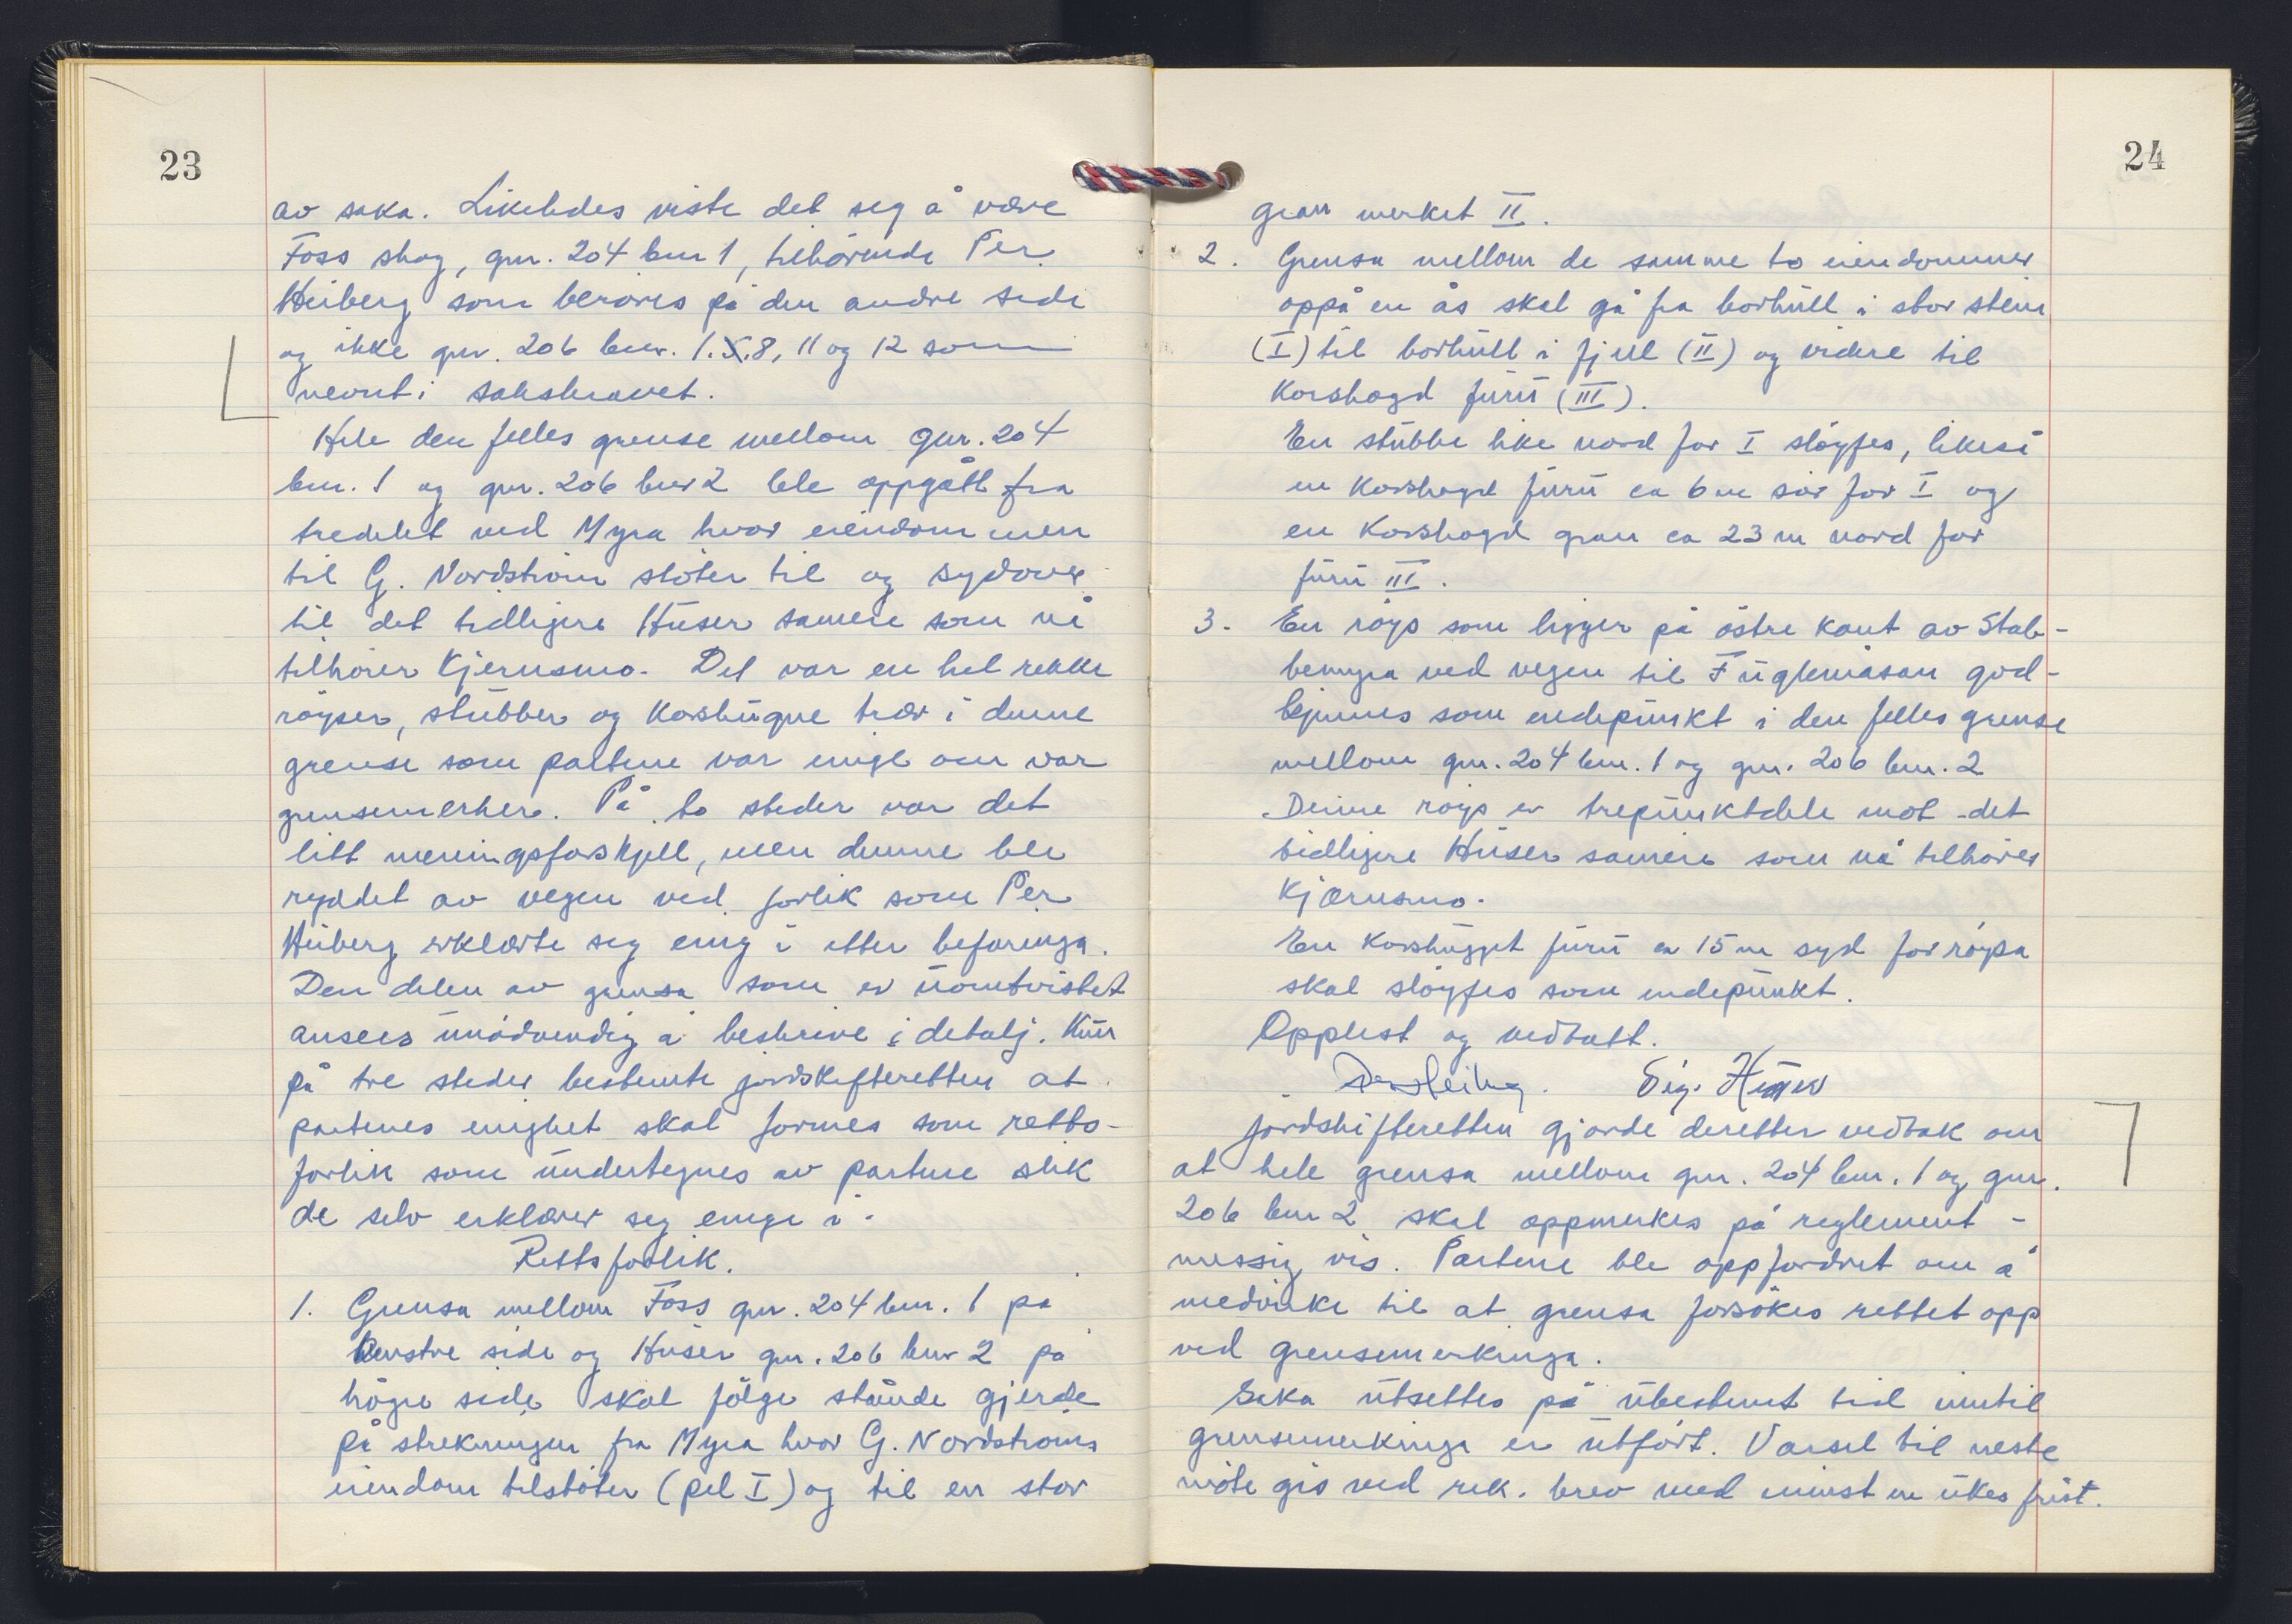 23
av saka. Likeledes viste det seg å være
Foss skog, gnr. 204 bnr 1, tilhörende Per
Heiberg som beröres på den andre side
og ikke gnr. 206 bnr. 1.5.8, 11 og 12 som
nevnt i sakskravet.
Hele den felles grense mellom gnr. 204
bnr. 1 og gnr. 206 bnr 2 ble oppgått fra
tredelet ved Myra hvor eiendommen
til G. Nordström stöter til og sydover
til det tidligere Huser sameie som nå
tilhörer Kjernsmo. Det var en hel rekke
röyser, stubber og korshugne trær i denne
grense som partene var enige om var
grensemerker. På to steder var det
litt meningsforskjell, men denne ble
ryddet av vegen ved forlik som Per
Heiberg erklærte seg enig i etter befaringa.
Den delen av grensa som er uomtvistet
ansees unödvendig å beskrive i detalj. Kun
på tre steder bestemte jordskifteretten at
partenes enighet skal formes som retts-
forlik som undertegnes av partene slik
de selv erklærer seg enige i.
Rettsforlik.
1. Grensa mellom Foss gnr. 204 bnr. 1 på
venstre side og Huser gnr. 206 bnr 2 på
högre side skal fölge stående gjerde
på strekningen fra Myra hvor G. Nordströms
eiendom tilstöter (pel I) og til en stor
24
gran merket II.
2. Grensa mellom de samme to eiendommer
oppå en ås skal gå fra borhull i stor stein
(I) til borhull i fjell (II) og videre til
korshogd furu (III).
En stubbe like nord for I slöyfes, likeså
en korshogd furu ca 6 m sör for I og
en korshogd gran ca 23 m nord for
furu III.
3. En röys som ligger på östre kant av Stub-
bemyra ved vegen til Fuglemåsan god-
kjennes som endepunkt i den felles grense
mellom gnr. 204 bnr. 1 og gnr. 206 bnr. 2
Denne röys er trepunktdele mot det
tidligere Huser sameie som nå tilhörer
Kjærnsmo.
En korshugget furu ca 15 m syd for röysa
skal slöyfes som endepunkt.
Opplest og vedtatt.
Per Heiberg. Sig. Huser
Jordskifteretten gjorde deretter vedtak om
at hele grensa mellom gnr. 204 bnr. 1 og gnr.
206 bnr 2 skal oppmerkes på reglement-
messig vis. Partene ble oppfordret om å
medvirke til at grensa forsökes rettet opp
ved grensemerkinga.
Saka utsettes på ubestemt tid inntil
grensemerkinga er utfört. Varsel til neste
möte gis ved rek. brev med minst en ukes frist.